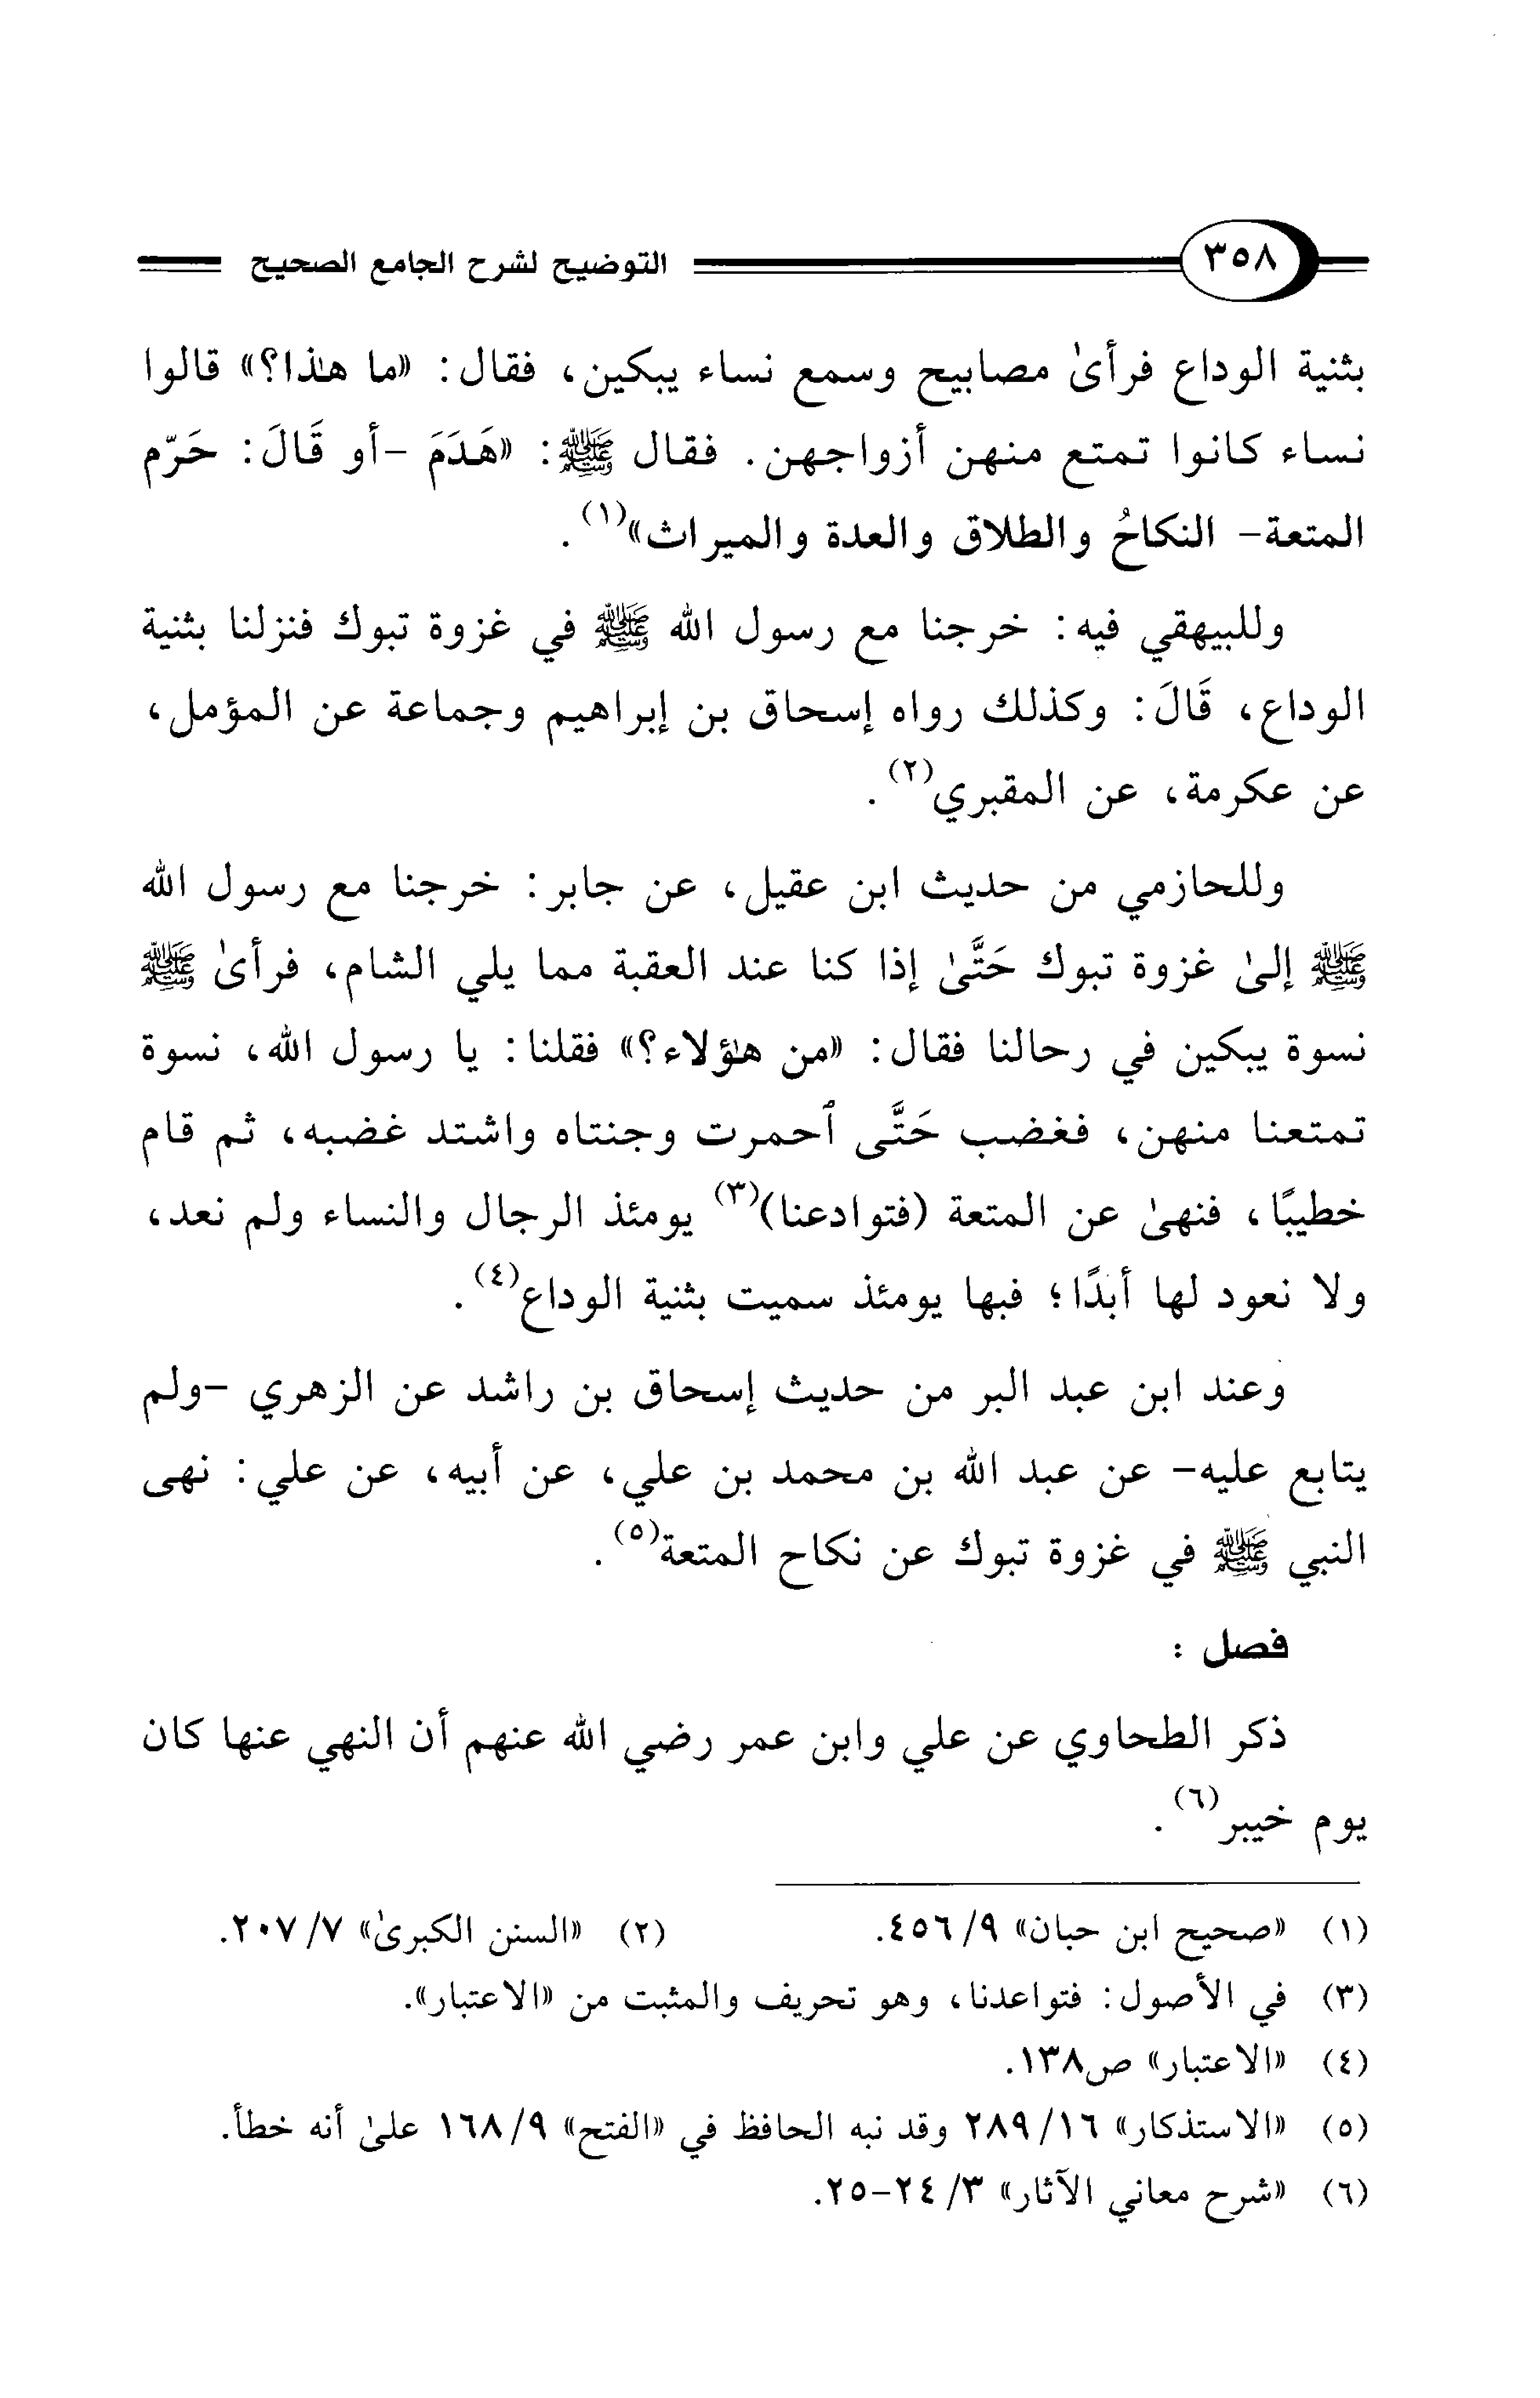 ٣٥٨ التوضيح لشرح الجامع الصحيح
بثنية الوداع فرأىٰ مصابيح وسمع نساء يبكين، فقال: «ما هذا؟» قالوا
نساء كانوا تمتع منهن أزواجهن. فقال ﷺ: «هَدَمَ -أو قَالَ: حَرّم
المتعة- النكاحُ والطلاق والعدة والميراث»(١).
وللبيهقي فيه: خرجنا مع رسول الله ﷺ في غزوة تبوك فنزلنا بثنية
الوداع، قَالَ: وكذلك رواه إسحاق بن إبراهيم وجماعة عن المؤمل،
عن عكرمة، عن المقبري(٢).
وللحازمي من حديث ابن عقيل، عن جابر: خرجنا مع رسول الله
ﷺ إلىٰ غزوة تبوك حَتَّىٰ إذا كنا عند العقبة مما يلي الشام، فرأىٰ ﷺ
نسوة يبكين في رحالنا فقال: «من هؤلاء؟» فقلنا: يا رسول الله، نسوة
تمتعنا منهن، فغضب حَتَّى ٱحمرت وجنتاه واشتد غضبه، ثم قام
خطيبًا، فنهىٰ عن المتعة (فتوادعنا)(٣) يومئذ الرجال والنساء ولم نعد،
ولا نعود لها أبدًا؛ فبها يومئذ سميت بثنية الوداع(٤).
وعند ابن عبد البر من حديث إسحاق بن راشد عن الزهري -ولم
يتابع عليه- عن عبد الله بن محمد بن علي، عن أبيه، عن علي: نهى
النبي ﷺ في غزوة تبوك عن نكاح المتعة(٥).
فصل:
ذكر الطحاوي عن علي وابن عمر رضي الله عنهم أن النهي عنها كان
يوم خيبر(٦).
(١) «صحيح ابن حبان» ٩/ ٤٥٦. (٢) «السنن الكبرىٰ» ٧/ ٢٠٧.
(٣) في الأصول: فتواعدنا، وهو تحريف والمثبت من «الاعتبار».
(٤) «الاعتبار» ص١٣٨.
(٥) «الاستذكار» ١٦/ ٢٨٩ وقد نبه الحافظ في «الفتح» ٩/ ١٦٨ علىٰ أنه خطأ.
(٦) «شرح معاني الآثار» ٣/ ٢٤-٢٥.